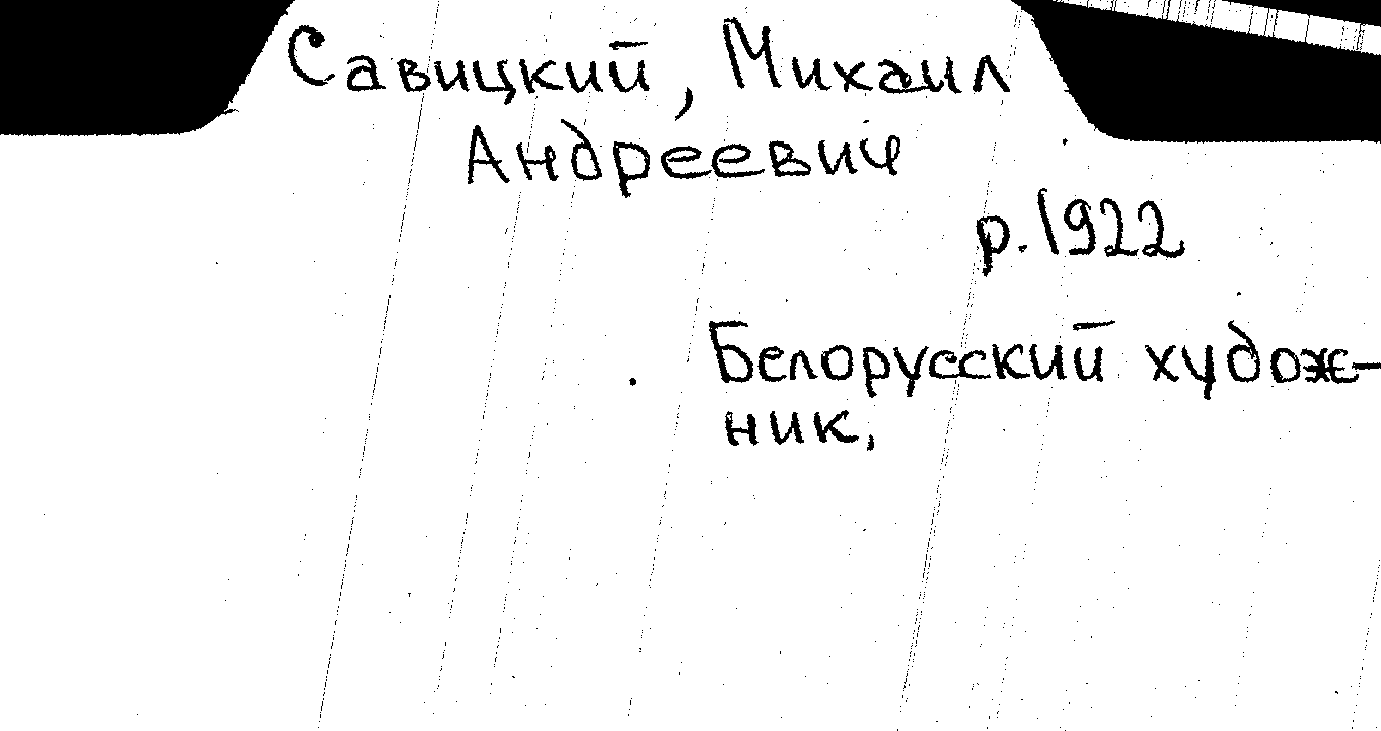 Савицкий, Михаил
Андреевич
р. 1922
Белорусский худож-
ник,